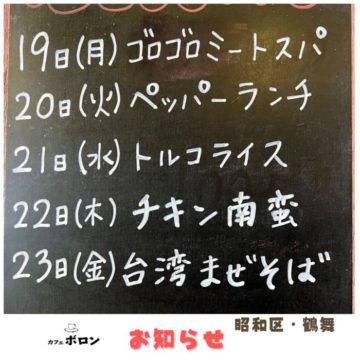 19日(月)ゴロゴロミートスパ
20日(火)ペッパーランチ
21日(水)トルコライス
22日(木)チキン南蛮
23日(金)台湾まぜそば
昭和区・鶴舞
カフェ ボロン
お知らせ